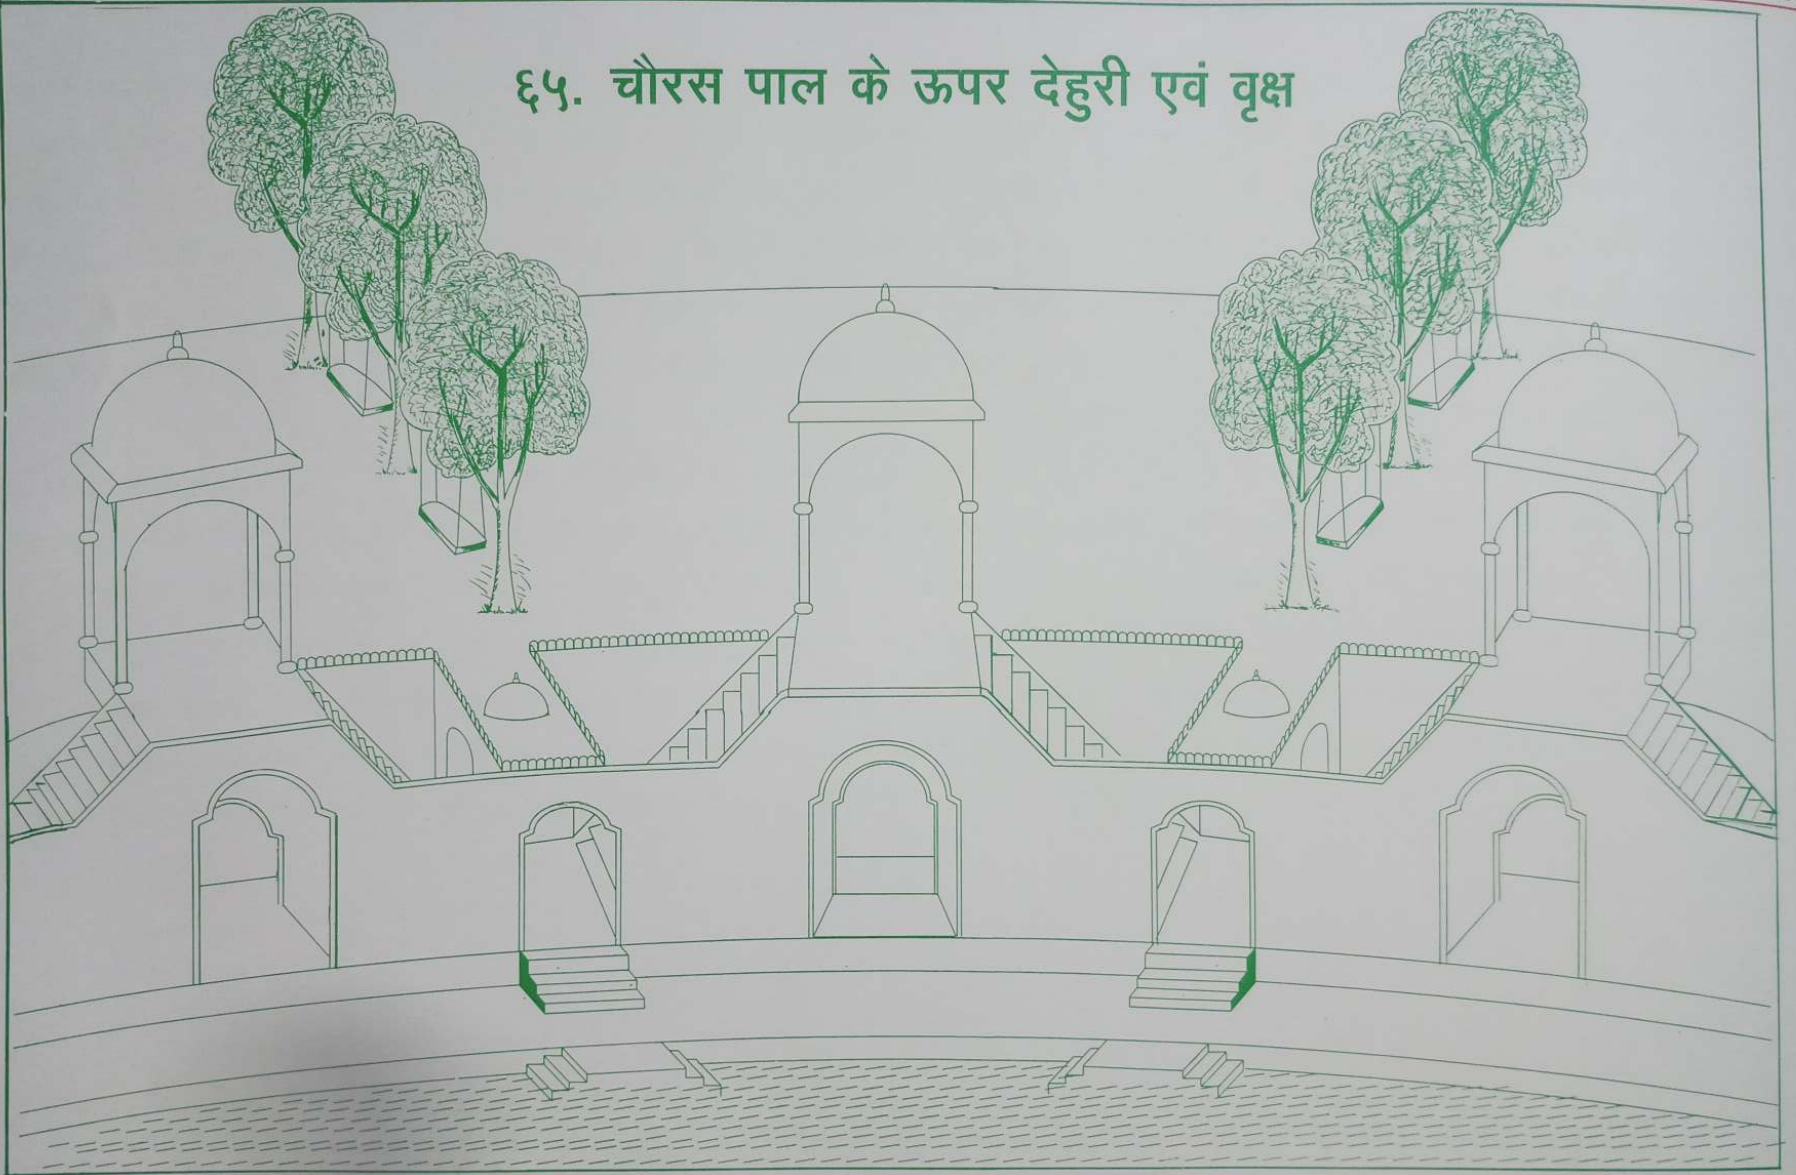 ६५. चौरस पाल के ऊपर देहुरी एवं वृक्ष